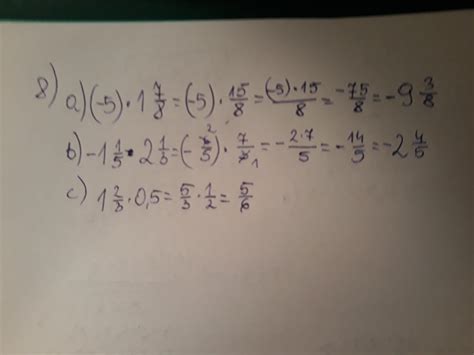 8) a) (-5) · 1 7/8 = (-5) · 15/8 = (-5)·15/8 = -75/8 = -9 3/8
b) -1 1/5 · 2 1/3 = (-6̸²/5) · 7/3̸₁ = -2·7/5 = -14/5 = -2 4/5
c) 1 2/3 · 0,5 = 5/3 · 1/2 = 5/6